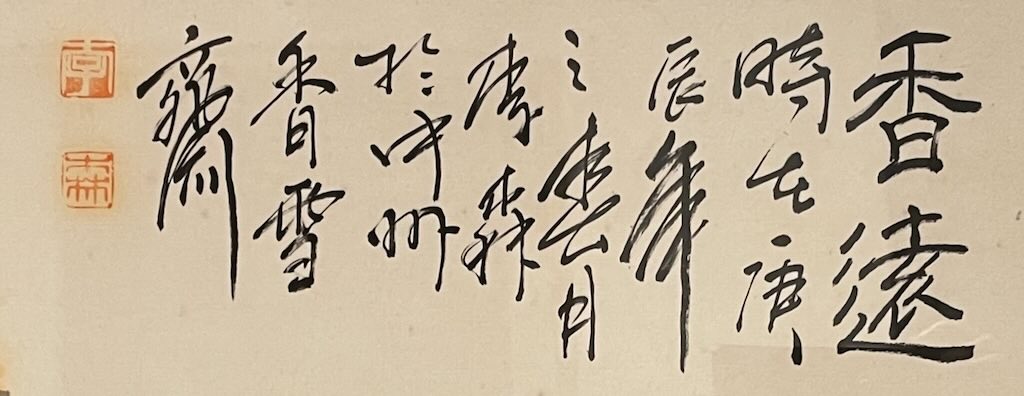 香遠
時在庚
辰年
之春月
李森
於中州
香雪
齋
李
森